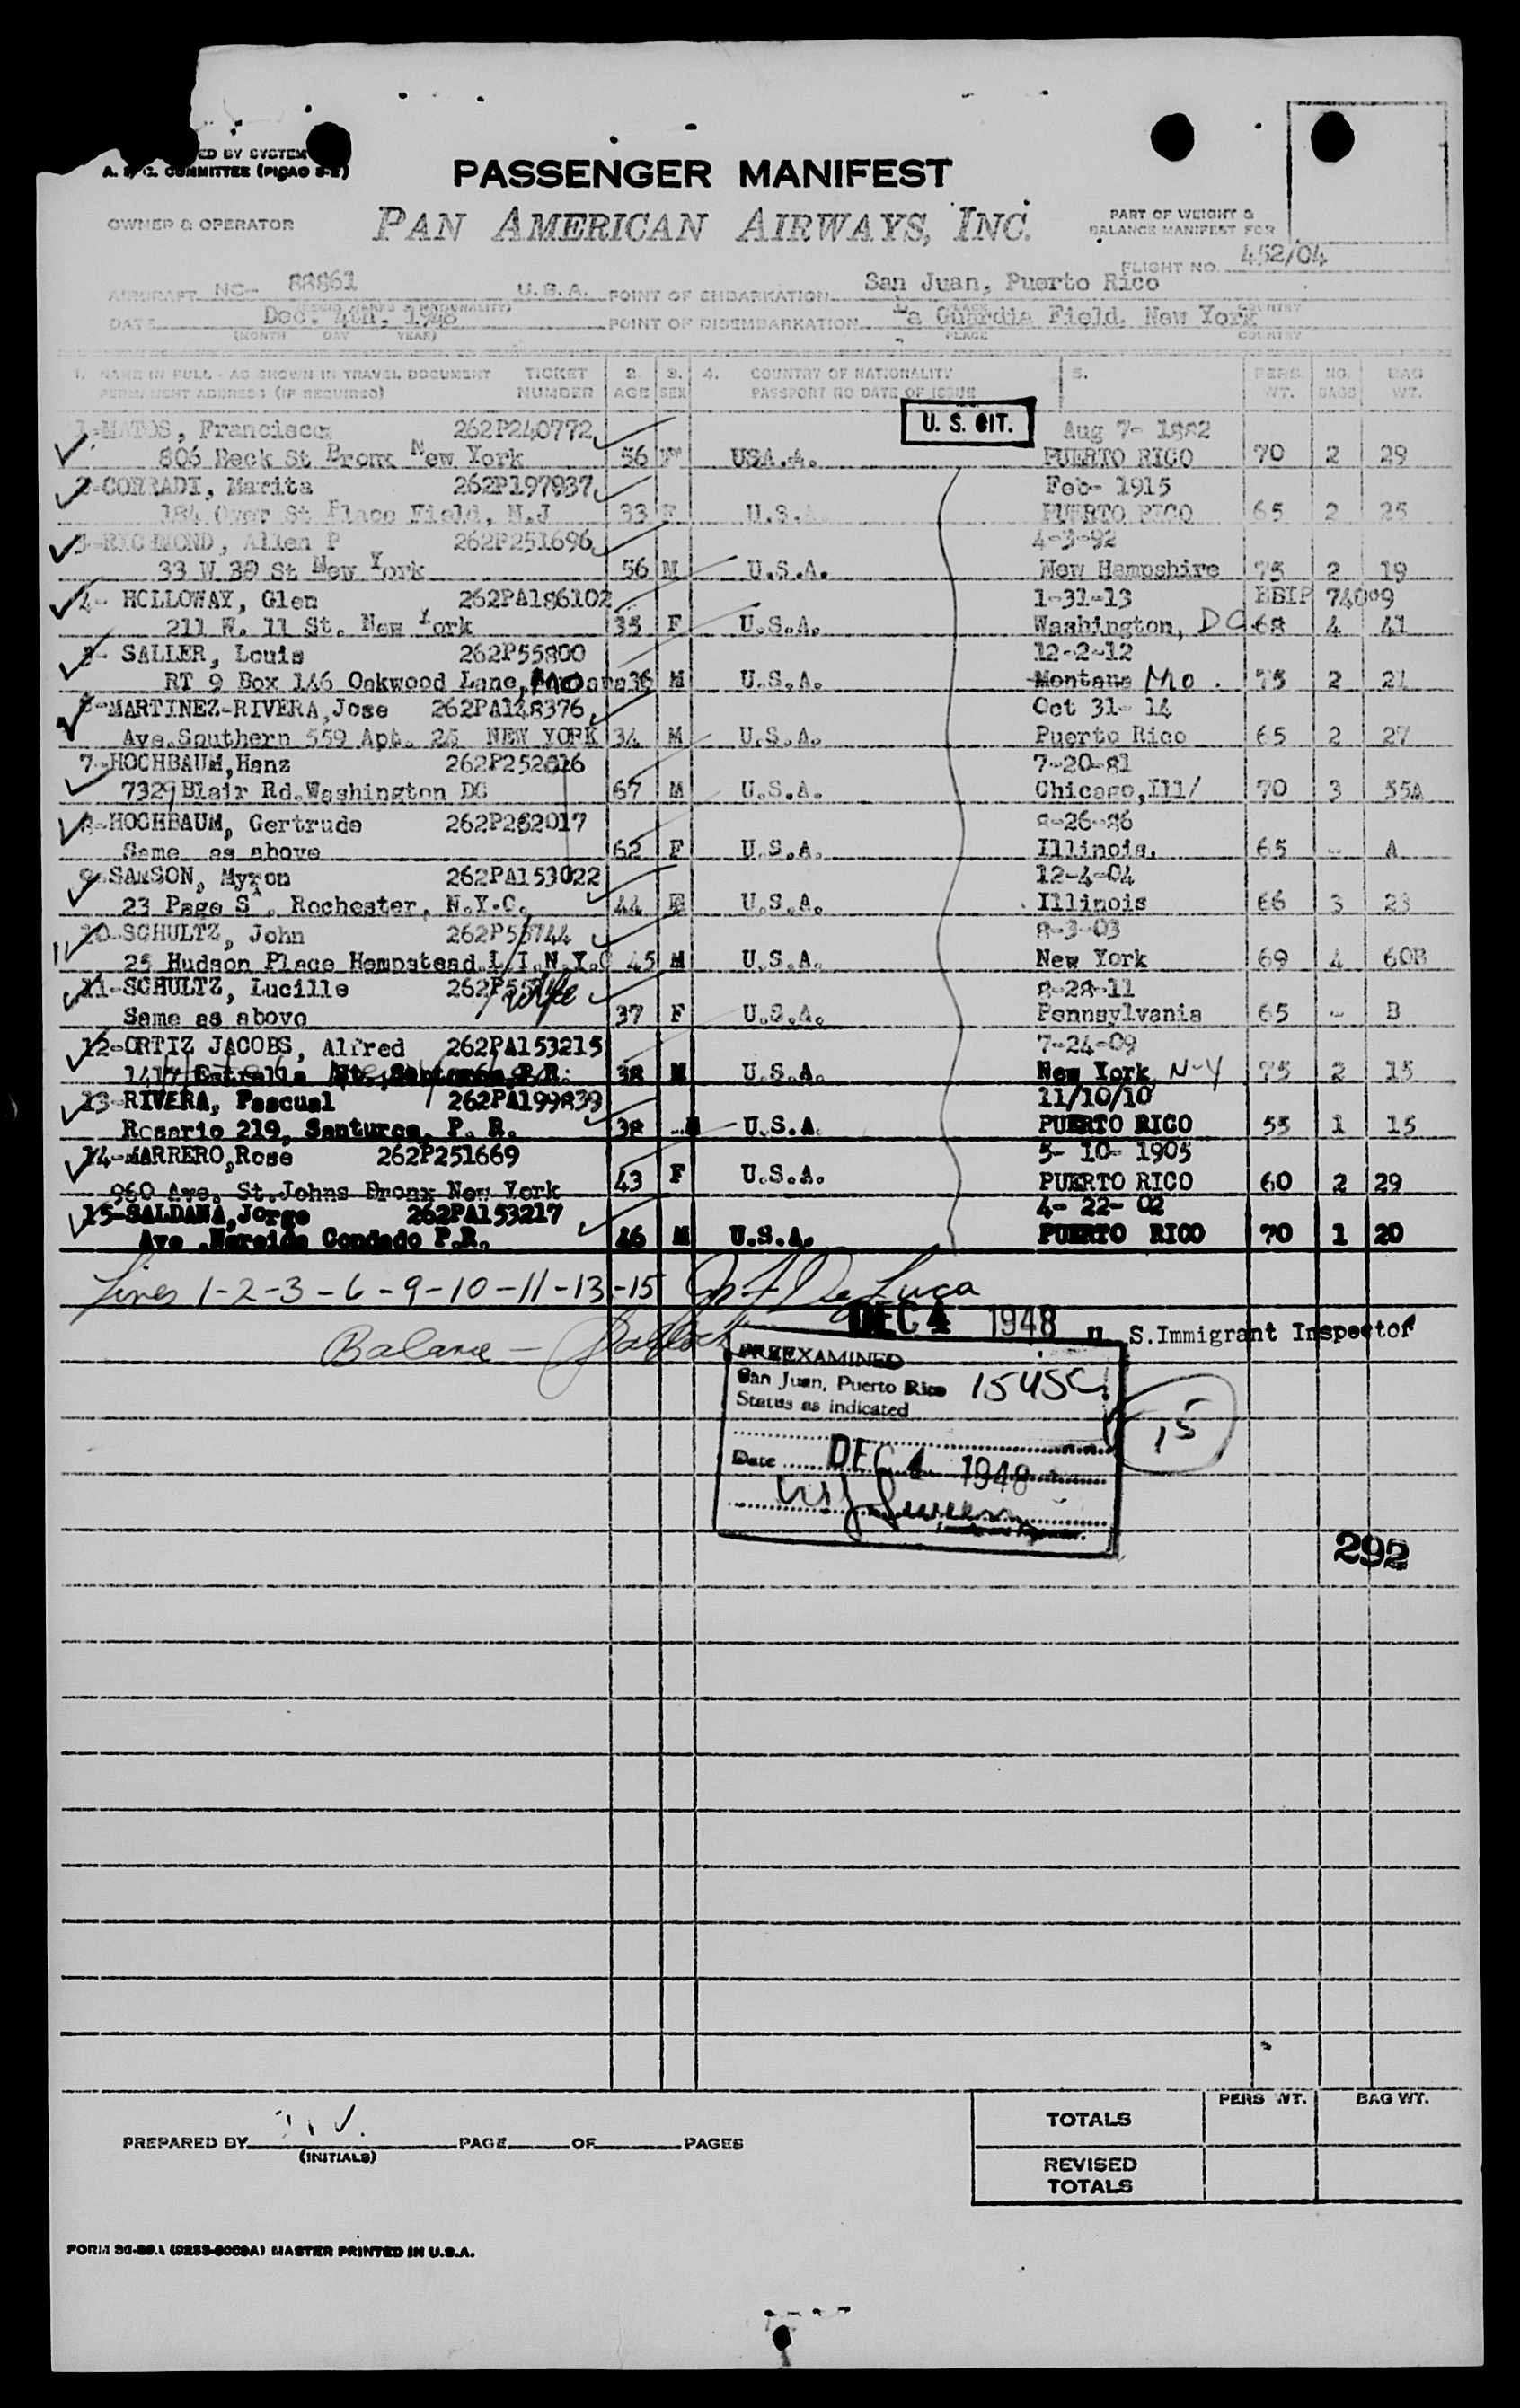 ED BY SYSTEM
COMMITTEE (PICAO S-2)
PASSENGER MANIFEST
OWNER & OPERATOR PAN AMERICAN AIRWAYS, INC.
PART OF WEIGHT &
BALANCE MANIFEST FOR
FLIGHT NO. 452/04
AIRCRAFT NC- 88861 U.S.A. POINT OF EMBARKATION San Juan, Puerto Rico
DATE Dec. 4th. 1948 POINT OF DISEMBARKATION La Guardia Field. New York
(MONTH DAY YEAR) PLACE COUNTRY
1. NAME IN FULL - AS SHOWN IN TRAVEL DOCUMENT TICKET 2. 3. 4. COUNTRY OF NATIONALITY 5. PERS NO. BAG
PERMANENT ADDRESS (IF REQUIRED) NUMBER AGE SEX PASSPORT NO DATE OF ISSUE WT. BAGS WT.
U. S. CIT.
1-MATOS, Francisca 262P240772 Aug 7- 1882
806 Beck St Bronx New York 56 F USA.A. PUERTO RICO 70 2 29
2-CORRADI, Marita 262P197937 Feb- 1915
184 Over St Place Field, N.J 33 F U.S.A. PUERTO RICO 65 2 25
3-RICHMOND, Allen P 262P251696 4-3-92
33 W 38 St New York 56 M U.S.A. New Hampshire 75 2 19
4- HOLLOWAY, Glen 262PA186102 1-31-13 74009
211 W. 11 St. New York 35 F U.S.A. Washington, DC 68 4 41
5- SALLER, Louis 262P55800 12-2-12
RT 9 Box 146 Oakwood Lane, Mo 36 M U.S.A. Montana Mo. 75 2 21
6-MARTINEZ-RIVERA, Jose 262PA148376 Oct 31- 14
Ave.Southern 559 Apt. 25 NEW YORK 34 M U.S.A. Puerto Rico 65 2 27
7-HOCHBAUM, Hanz 262P252016 7-20-81
7329 Blair Rd.Washington DC 67 M U.S.A. Chicago,Ill/ 70 3 55A
8-HOCHBAUM, Gertrude 262P252017 8-26-86
Same as above 62 F U.S.A. Illinois. 65 - A
9-SAMSON, Myron 262PA153022 12-4-04
23 Page St. Rochester, N.Y.C. 44 U.S.A. Illinois 66 3 23
10-SCHULTZ, John 262P55744 8-3-03
25 Hudson Place Hempstead L.I.N.Y.C 45 M U.S.A. New York 69 4 60B
11-SCHULTZ, Lucille wife 8-28-11
Same as above 37 F U.S.A. Pennsylvania 65 - B
12-ORTIZ JACOBS, Alfred 262PA153215 7-24-09
1417 Estrella St., Santurce, P.R. 38 M U.S.A. New York N-Y 75 2 15
13-RIVERA, Pascual 262PA199839 11/10/10
Rosario 219, Santurce, P. R. 38 M U.S.A. PUERTO RICO 55 1 15
14-MARRERO, Rose 262P251669 5- 10- 1905
960 Ave. St.Johns Bronx New York 43 F U.S.A. PUERTO RICO 60 2 29
15-SALDANA, Jorge 262PA153217 4- 22- 02
Ave .Nereida Condado P.R. 46 M U.S.A. PUERTO RICO 70 1 20
Lines 1-2-3-6-9-10-11-13-15 De Luca
DEC 4 1948 U.S.Immigrant Inspector
Balance -
PREEXAMINED
San Juan, Puerto Rico 15USC
Status as indicated
15
Date DEC 4 1948
292
TOTALS PERS WT. BAG WT.
PREPARED BY PAGE OF PAGES
(INITIALS)
REVISED
TOTALS
MASTER PRINTED IN U.S.A.